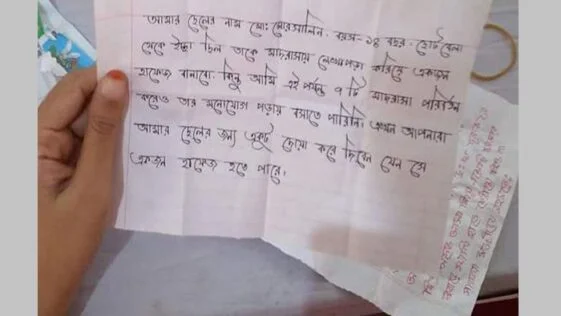 আমার ছেলের নাম মো: মোরসালিন। বয়স- ১৪ বছর। ছোট বেলা
থেকে ইচ্ছা ছিল তাকে মাদরাসায় লেখাপড়া করিয়ে একজন
হাফেজ বানাবো। কিন্তু আমি এই পর্যন্ত ৭ টি মাদরাসা পরিবর্তন
করেও তার মনোযোগ পড়ায় বসাতে পারিনি। এখন আপনারা
আমার ছেলের জন্য একটু দোয়া করে দিবেন যেন সে
একজন হাফেজ হতে পারে।